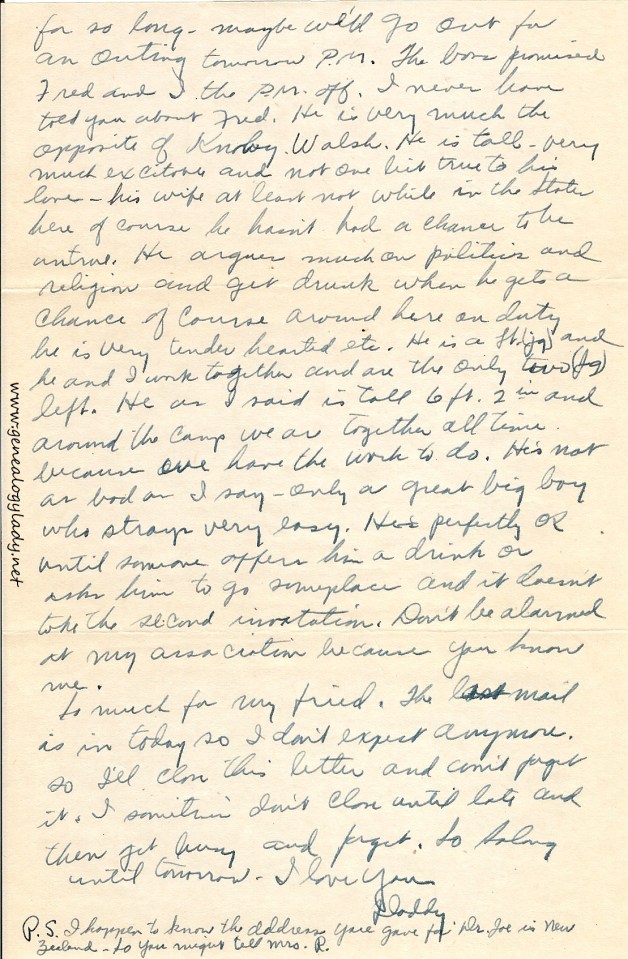 for so long - maybe we'll go out for
an outing tomorrow P.M. The boss promised
Fred and I the P.M. off. I never have
told you about Fred. He is very much the
opposite of Knobey Walsh. He is tall - very
much excitable and not one bit true to his
love - his wife at least not while in the States
here of course he hasn't had a chance to be
untrue. He argues much on politics and
religion and get drunk when he gets a
chance of course around here on duty
he is very tender hearted etc. He is a Lt (jg) and
he and I work together and are the only two (jg)
left. He as I said is tall 6 ft. 2 in and
around the camp we are together all time
because we have the work to do. He's not
as bad as I say - only a great big boy
who strays very easy. He's perfectly OK
until someone offers him a drink or
asks him to go someplace and it doesn't
take the second invatation. Don't be alarmed
at my association because you know
me.
So much for my fried. The last mail
is in today so I don't expect anymore.
so I'll close this letter and won't forget
it. I sometimes don't close until late and
then get busy and forget. So Solong
until tomorrow - I love you
Daddy
P.S. I happen to know the address youre gave for Dr. Joe is New
Zeeland - so you might tell Mrs. R.
www.genealogylady.net